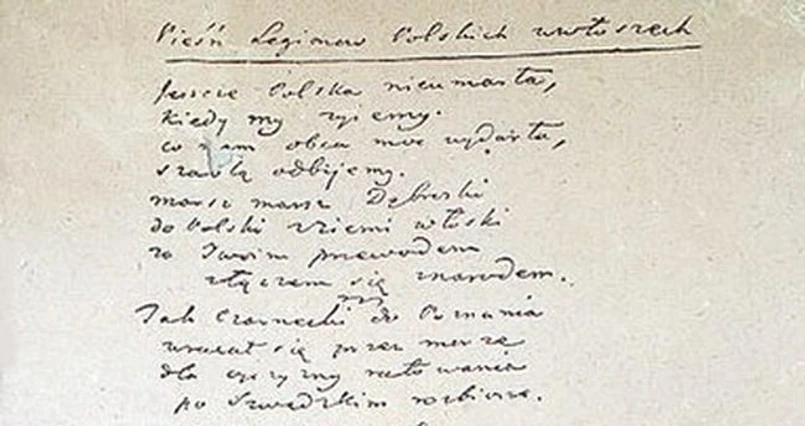 Pieśń Legionow Polskich wewłoszech
Jeszcze Polska nieumarła,
kiedy my żyiemy.
co nam obca moc wydarła,
szablą odbijemy.
marsz marsz Dąbroski
do Polski zziemi włoski
za Twoim przewodem
złączem się znarodem.
Jak Czarnecki do Poznania
wracał się przez morze
dla oyczyzny ratowania
po szwedzkim rozbiorze.